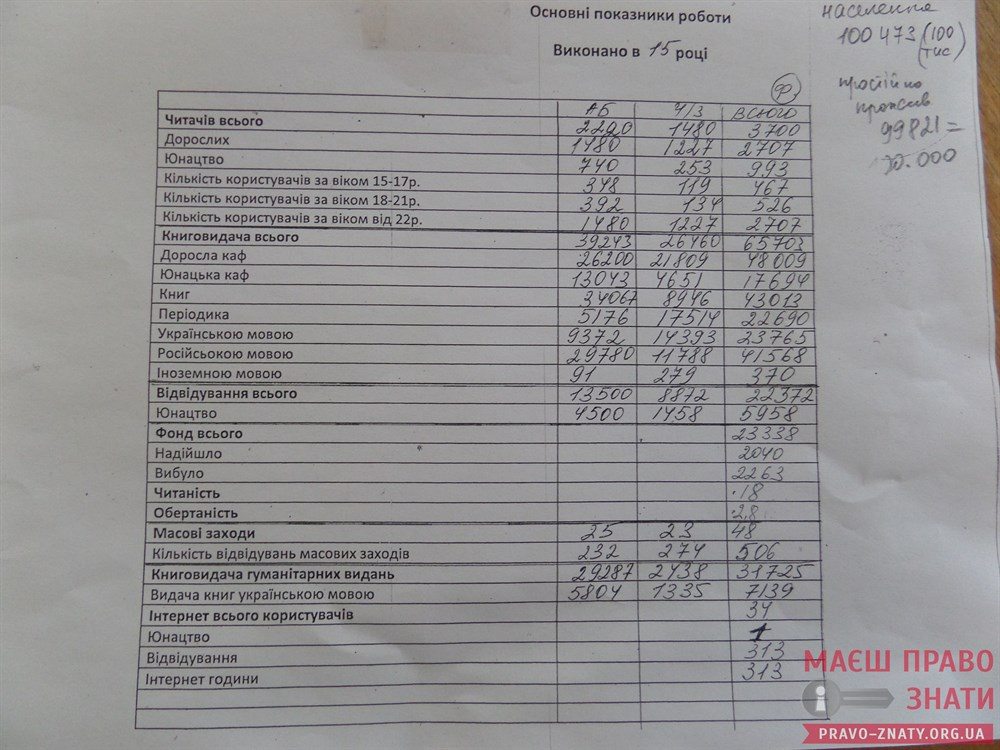 Основні показники роботи
Виконано в 15 році
населення
100 473 (100 тис)
постійно
прожив
99821 =
00.000
Ф
АБ Ч/З ВСЬОГО
Читачів всього 2220 1480 3700
Дорослих 1480 1227 2707
Юнацтво 740 253 993
Кількість користувачів за віком 15-17р. 348 119 467
Кількість користувачів за віком 18-21р. 392 134 526
Кількість користувачів за віком від 22р. 1480 1227 2707
Книговидача всього 39243 26460 65703
Доросла каф 26200 21809 48009
Юнацька каф 13043 4651 17694
Книг 34067 8946 43013
Періодика 5176 17514 22690
Українською мовою 9372 14393 23765
Російською мовою 29780 11788 41568
Іноземною мовою 91 279 370
Відвідування всього 13500 8872 22372
Юнацтво 4500 1458 5958
Фонд всього 23338
Надійшло 2040
Вибуло 2263
Читаність 18
Обертаність 2,8
Масові заходи 25 23 48
Кількість відвідувань масових заходів 232 274 506
Книговидача гуманітарних видань 29287 2438 31725
Видача книг українською мовою 5804 1335 7139
Інтернет всього користувачів 34
Юнацтво 1
Відвідування 313
Інтернет години 313
МАЄШ ПРАВО
ЗНАТИ
PRAVO-ZNATY.ORG.UA